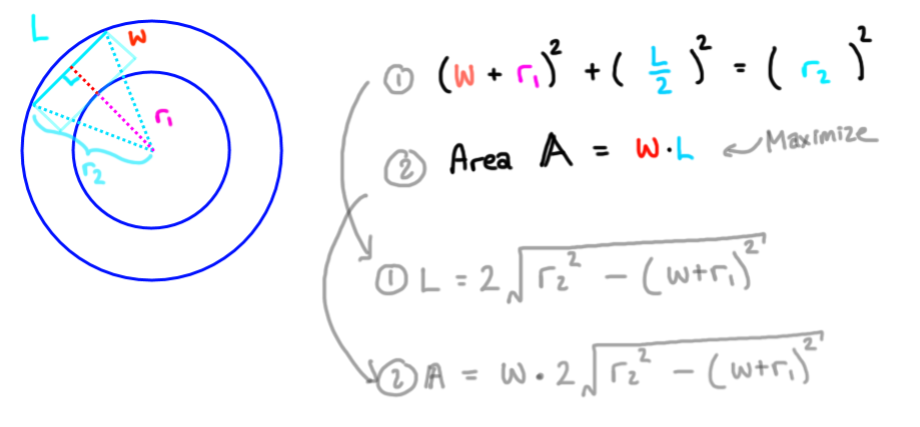 L
w
r₁
r₂
① (w + r₁)² + (L/2)² = (r₂)²
② Area A = w·L ← Maximize
① L = 2√(r₂² - (w+r₁)²)
② A = w·2√(r₂² - (w+r₁)²)